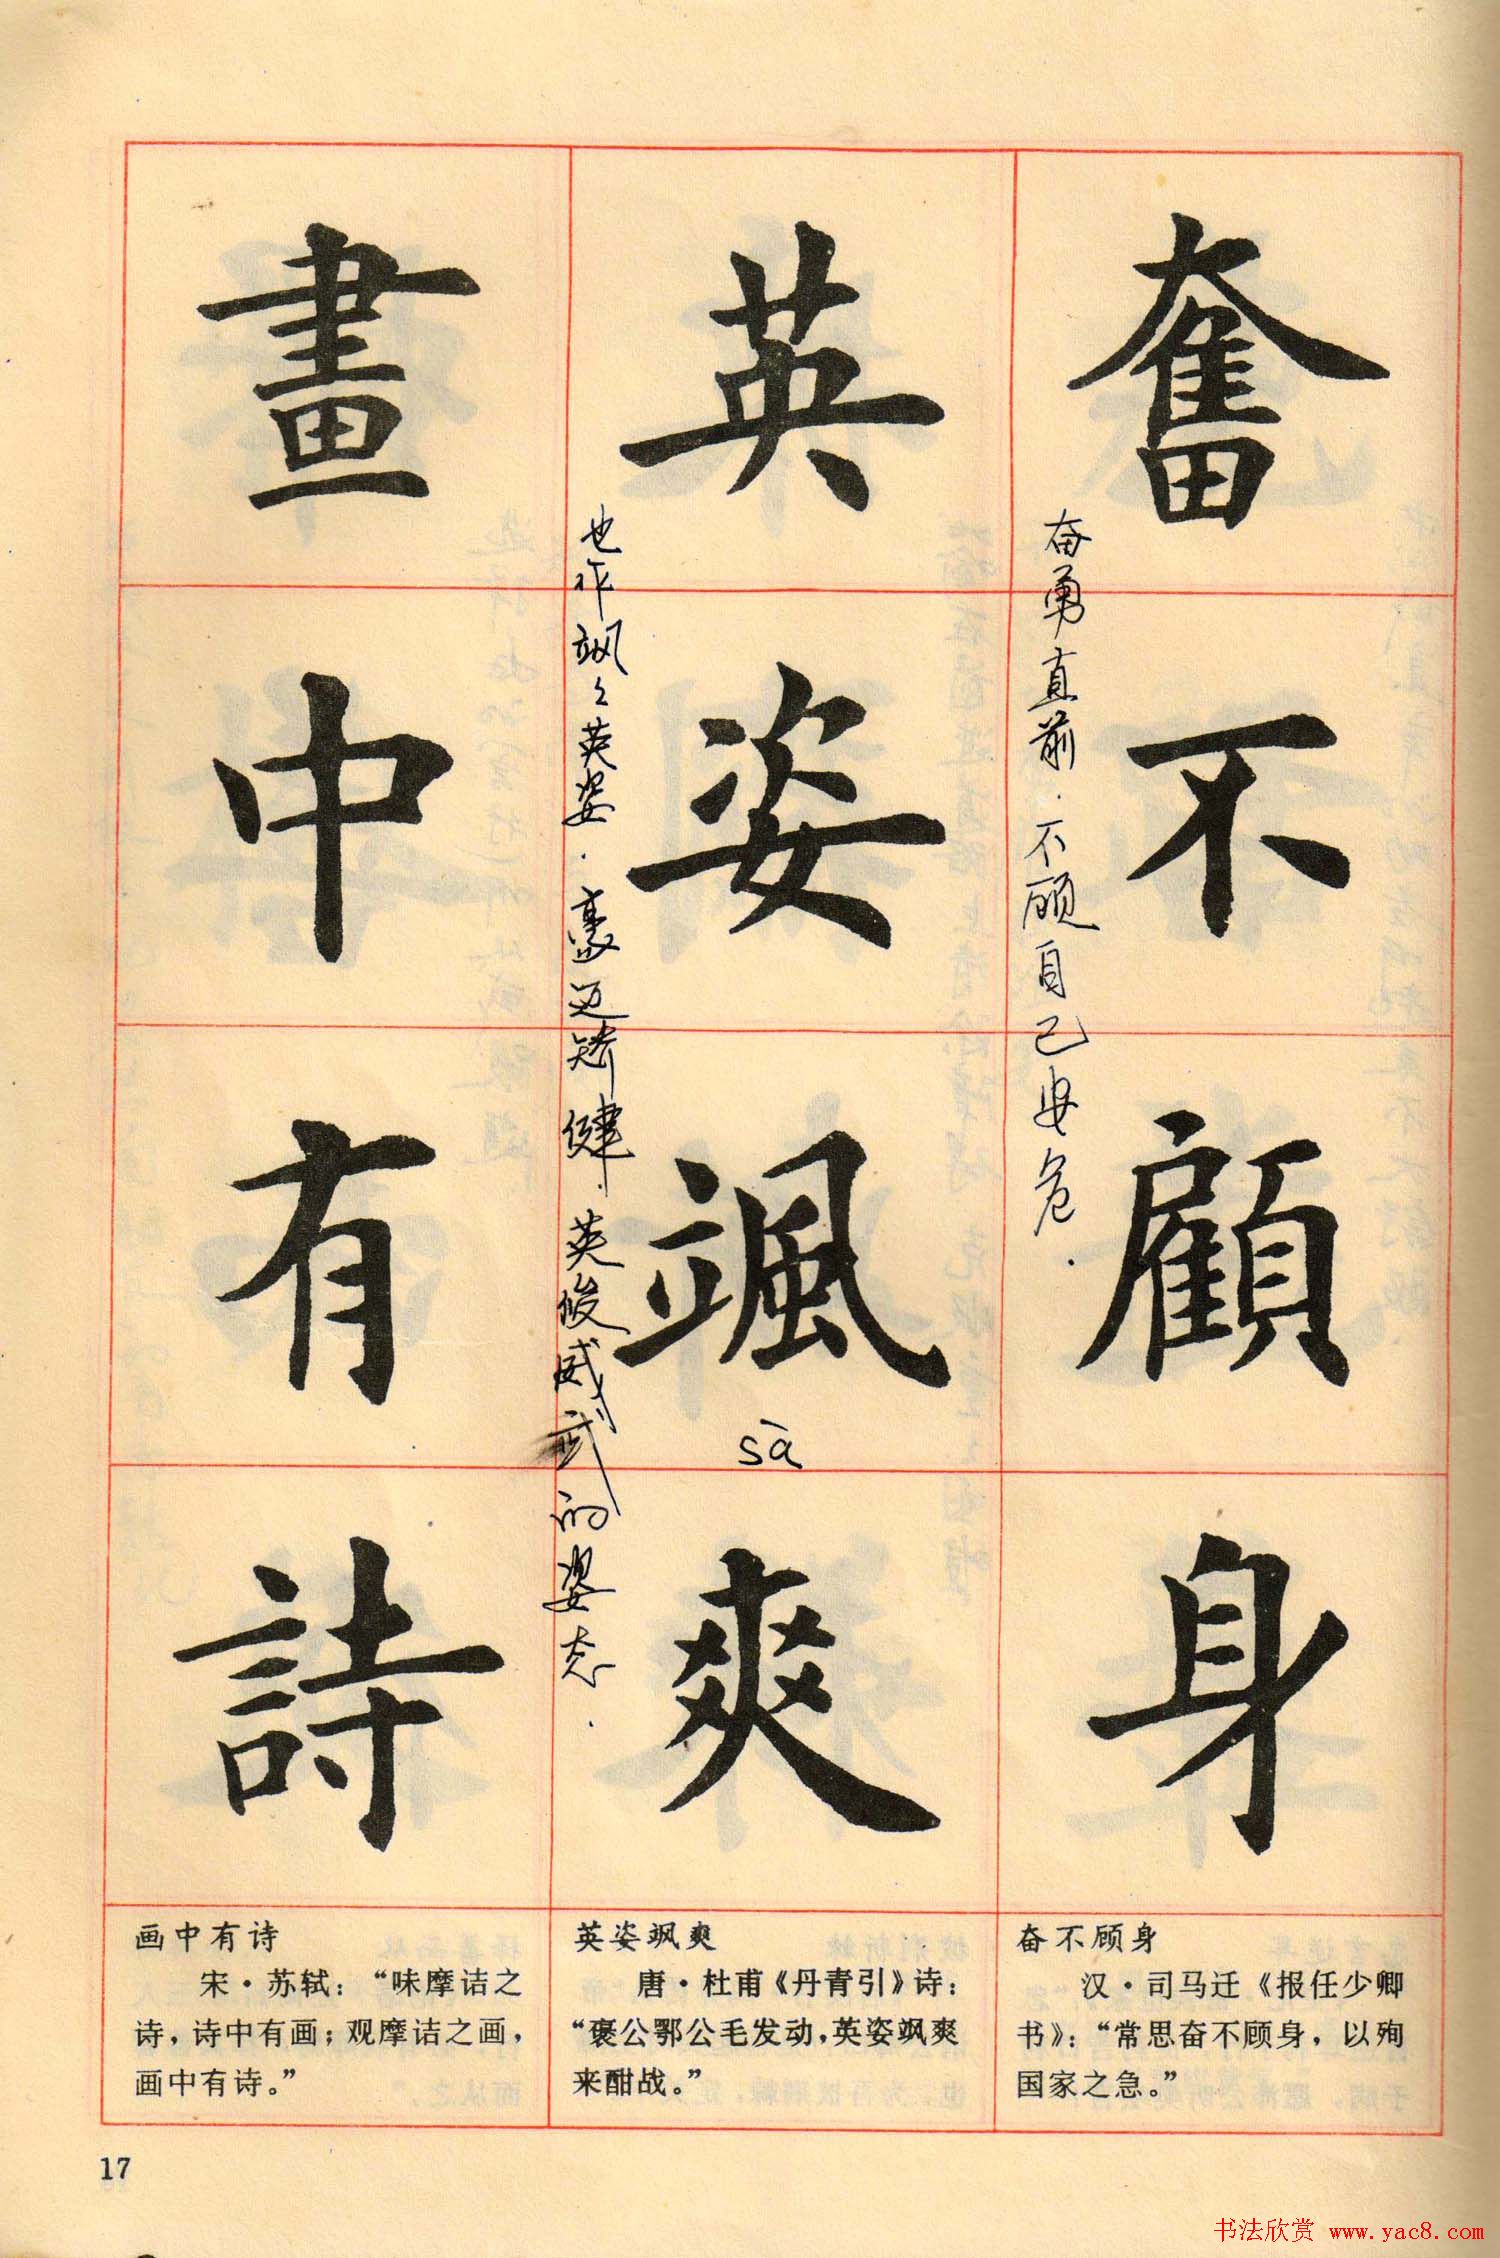 奮不顧身
奋勇直前.不顾自己安危.
英姿颯爽
sà
也作飒々英姿.豪迈矫健.英俊威武的姿态.
畫中有詩
奋不顾身
汉·司马迁《报任少卿
书》：“常思奋不顾身，以殉
国家之急。”
英姿飒爽
唐·杜甫《丹青引》诗：
“褒公鄂公毛发动，英姿飒爽
来酣战。”
画中有诗
宋·苏轼：“味摩诘之
诗，诗中有画；观摩诘之画，
画中有诗。”
17
书法欣赏 www.yac8.com